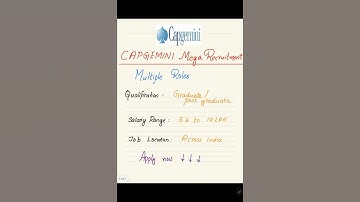 Capgemini
CAPGEMINI Mega Recruitment
Multiple Roles
Qualification : Graduate/
post graduate
Salary Range : 5.2 to 10 LPA
Job Location : Across India
Apply now ↓ ↓ ↓